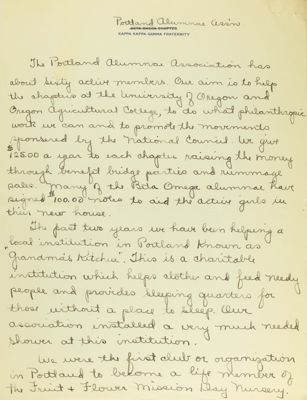 Portland Alumnae Ass'n
BETA OMEGA CHAPTER
KAPPA KAPPA GAMMA FRATERNITY
The Portland Alumnae Association has
about sixty active members. Our aim is to help
the chapters at the University of Oregon and
Oregon Agricultural College, to do what philanthropic
work we can and to promote the movements
sponsored by the National Council. We give
$125.00 a year to each chapter raising the money
through benefit bridge parties and rummage
sales. Many of the Beta Omega alumnae have
signed $100.00 notes to aid the active girls in
their new house.
The past two years we have been helping a
local institution in Portland known as
"Grandma's Kitchen". This is a charitable
institution which helps clothe and feed needy
people and provides sleeping quarters for
those without a place to sleep. Our
association installed a very much needed
shower at this institution.
We were the first club or organization
in Portland to become a life member of
the Fruit & Flower Mission Day Nursery.